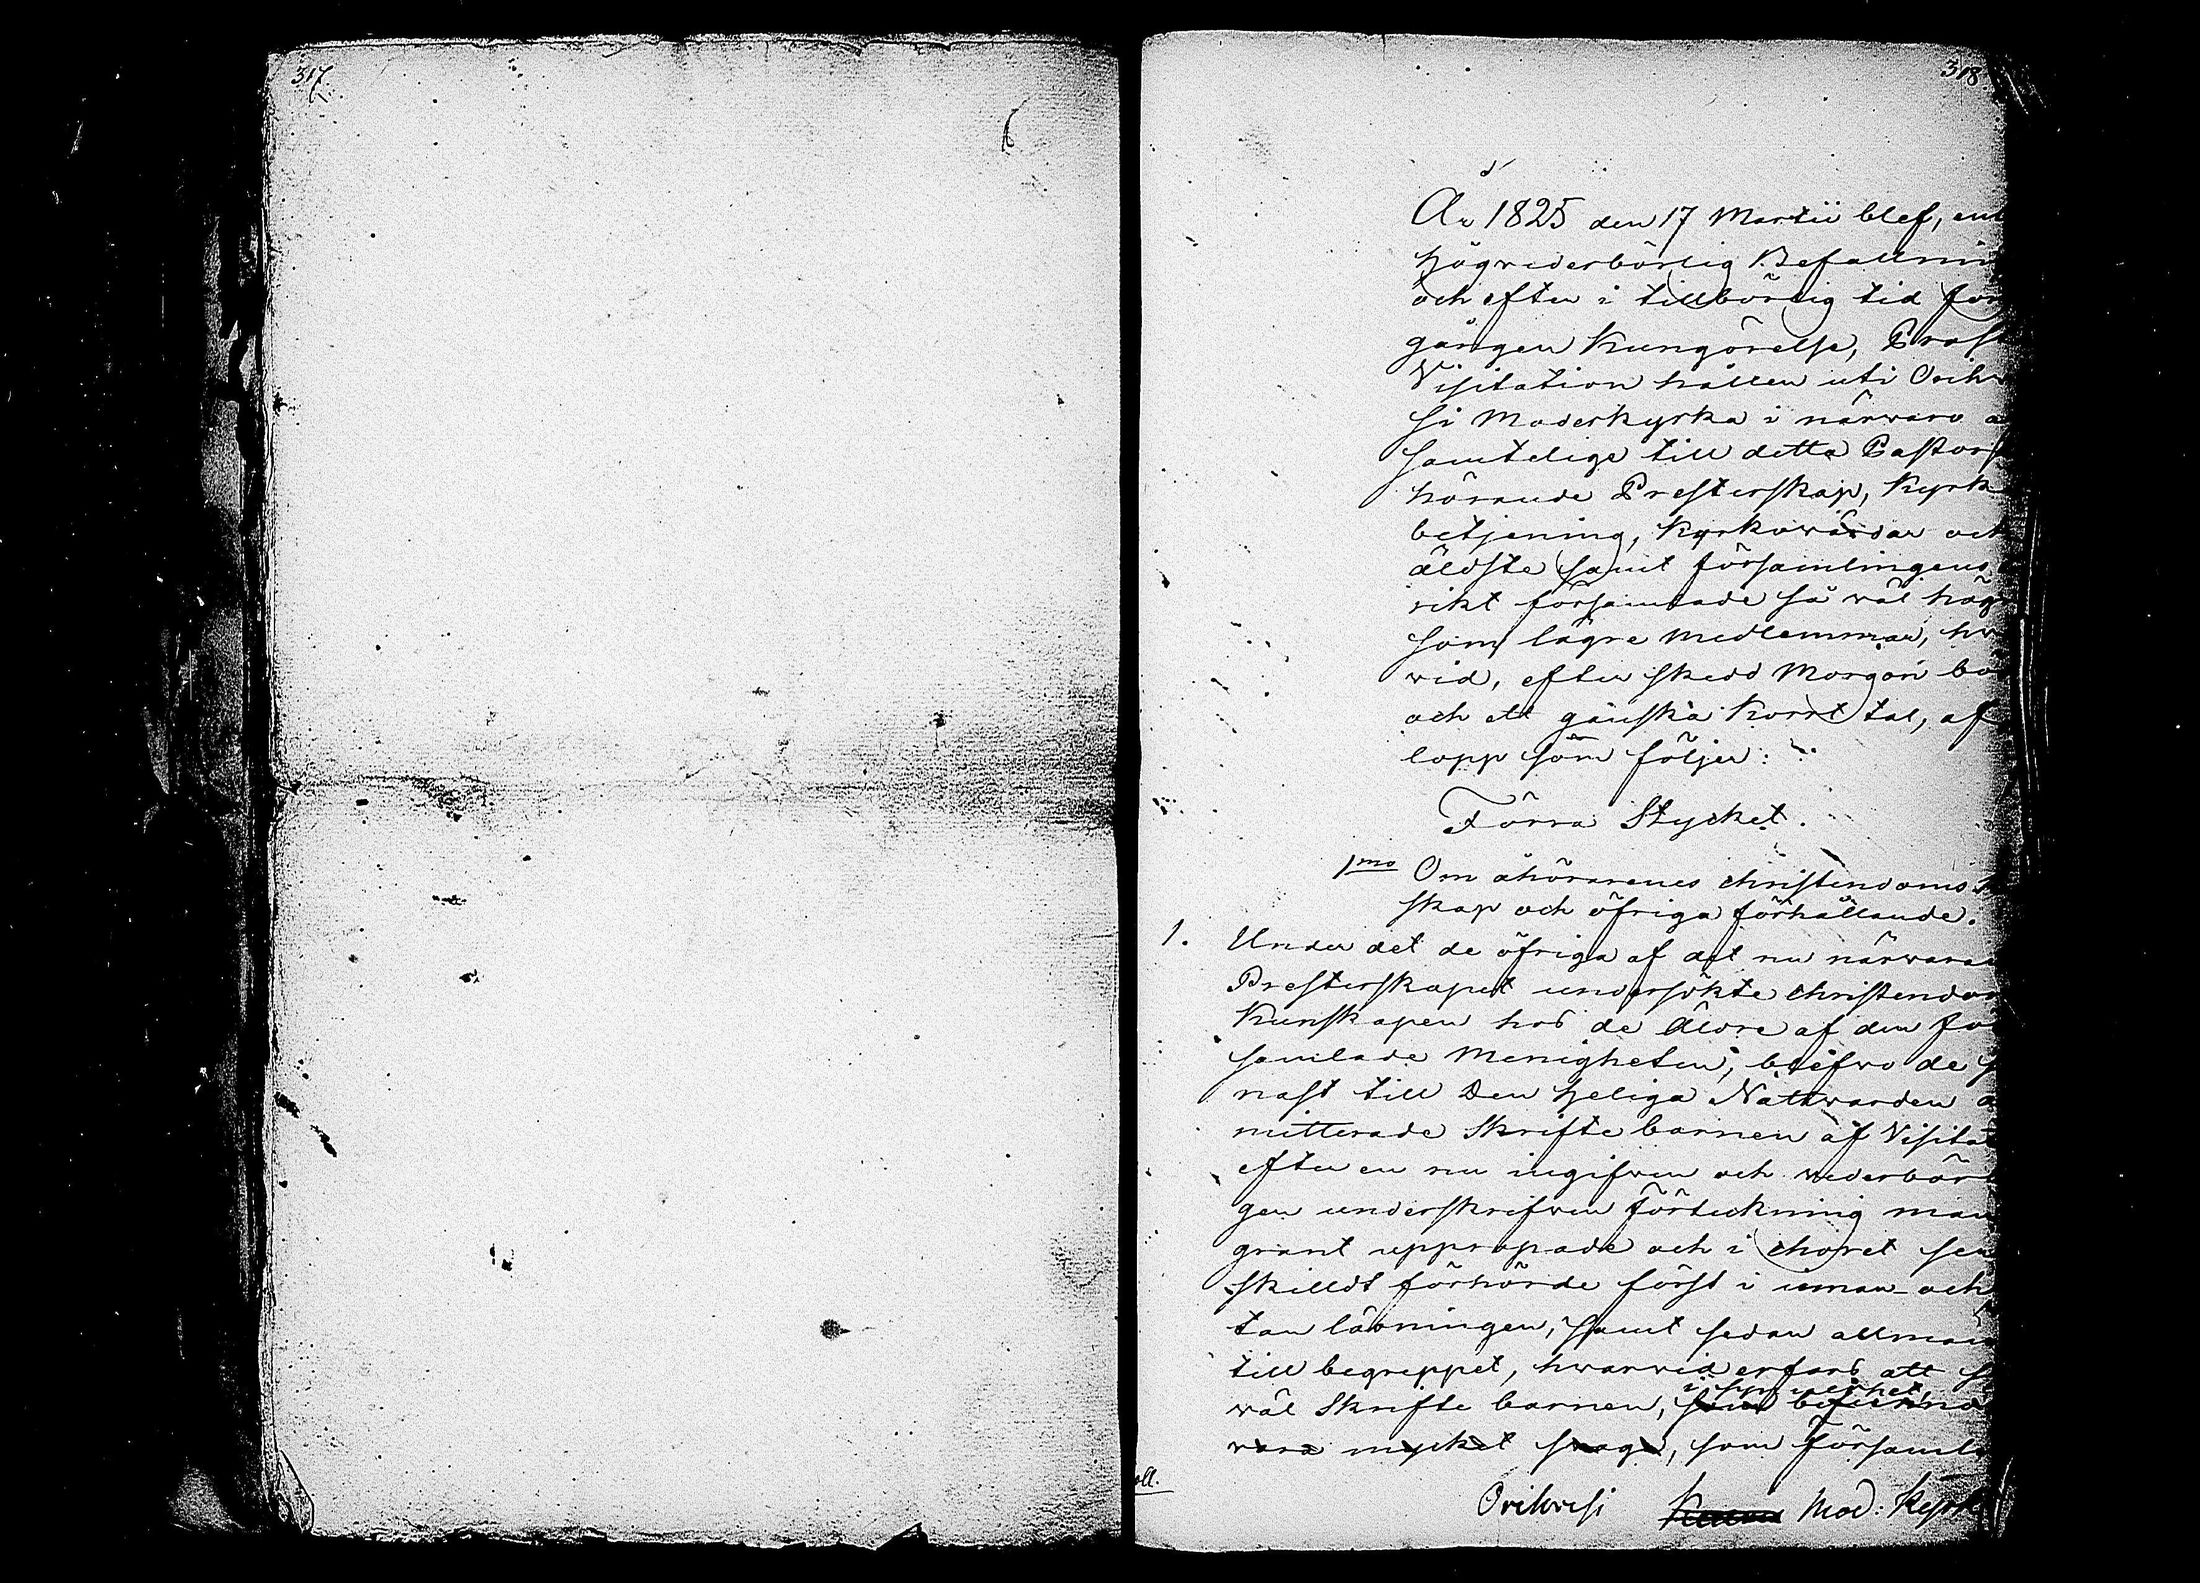 317
318
År 1825 den 17 Martii blef, enl
högvederbörlig Befallnin
och efter i tillbörlig tid för
gången Kungörelse, Prost
Visitation hållen uti Orih
si Moderkyrka i närvaro a
samtelige till detta Pastors
hörande Presterskap, Kyrk
betjening, Kyrkovärdar och
äldste samt församlingens
rikt församlade så väl hög
som lägre medlemmar, hv
vid, efter skedd Morgon bö
och ett ganska kort tal, af
lopp som följer:
Förra Stycket.
1mo Om åhörarenes christendoms k
skap och öfriga förhållande.
1. Under det de öfriga af det nu närvara
Presterskapet undersökte christendom
Kunskapen hos de Äldre af den för
samlade Menigheten, blefvo de s
nast till Den heliga Nattvarden a
mitterade Skriftebarnen af Visitat
efter en nu ingifven och vederbörl
gen underskrifven förteckning man
grant uppropade och i choret sär
skilldt förhörde först i innan och
tan läsningen, samt sedan allmän
till begreppet, hvarvid erfors att s
i synnerhet,
väl Skriftebarnen, som befunno
vara mycket svaga, som församl
oll.
Orihvesi Mod: Kyrk